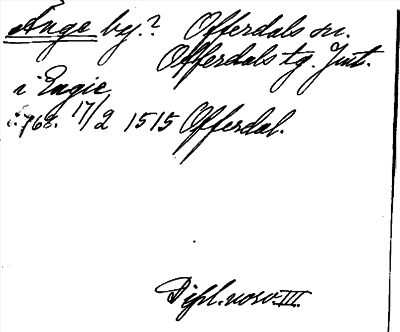 Ånge by? Offerdals sn.
Offerdals tg. Jmt.
i Engie
s. 768. 17/2 1515 Offerdal.
Dipl. norv. III.